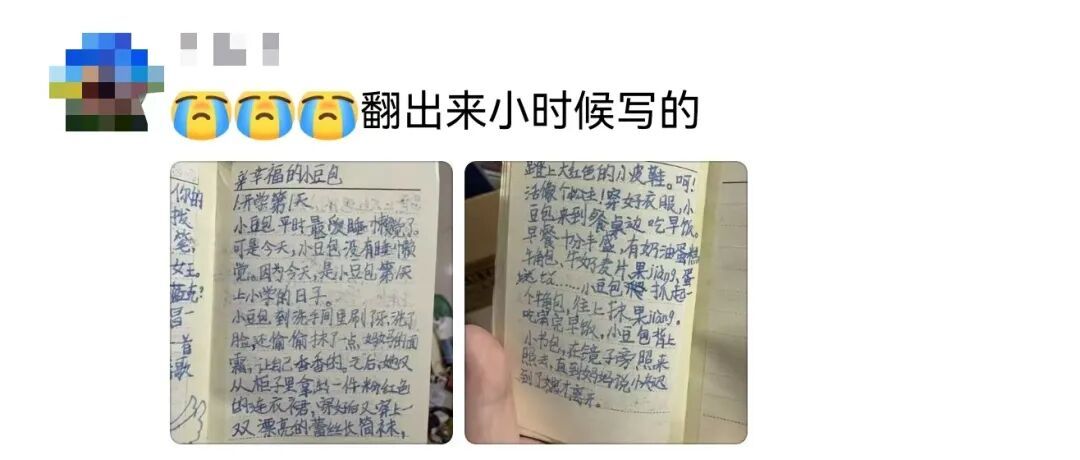 😭😭😭翻出来小时候写的
你的
拨
笔
女王。
蓝克?
昌一
首
歌
幸福的小豆包
1.开学第1天
小豆包平时最爱睡懒觉了。
可是今天,小豆包没有睡懒
觉。因为今天,是小豆包第1天
上小学的日子。
小豆包到洗手间里刷了牙,洗了
脸,还偷偷抹了一点妈妈的面
霜,让自己香香的。之后,她又
从柜子里拿出一件粉红色
的连衣裙,穿好后又穿上一
双漂亮的蕾丝长筒袜,
蹬上大红色的小皮鞋。呵!
活像个公主!穿好衣服,小
豆包来到餐桌边吃早饭。
早餐十分丰盛,有奶油蛋糕
牛角包、牛奶麦片、果jiàng,蛋
挞……小豆包抓起一
个牛角包,往上抹果jiàng。
吃完早饭,小豆包背上
小书包,在镜子旁照来
照去,直到妈妈说小心迟
到了她才离开。